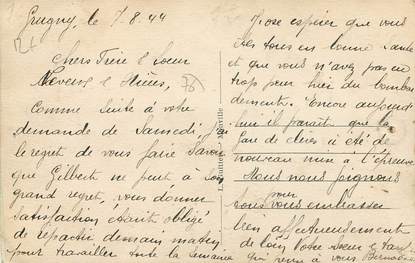 Grugny, le 7.8.44
Chers Frère & Soeur
Neveux & Nièces,
Comme suite à votre
demande de Samedi, j'ai
le regret de vous faire savoir
que Gilbert ne peut à son
grand regret, vous donner
satisfaction étant obligé
de repartir demain matin
pour travailler toute la semaine
J'ose espérer que vous
êtes tous en bonne santé
et que vous n'avez pas eu
trop peur hier du bombar
dement. Encore aujourd'
hui il paraît que la
gare de Clères a été de
nouveau mis à l'épreuve
Nous nous joignons
pour
tous vous embrasser
bien affectueusement
de loin Votre Soeur &
qui pense à vous